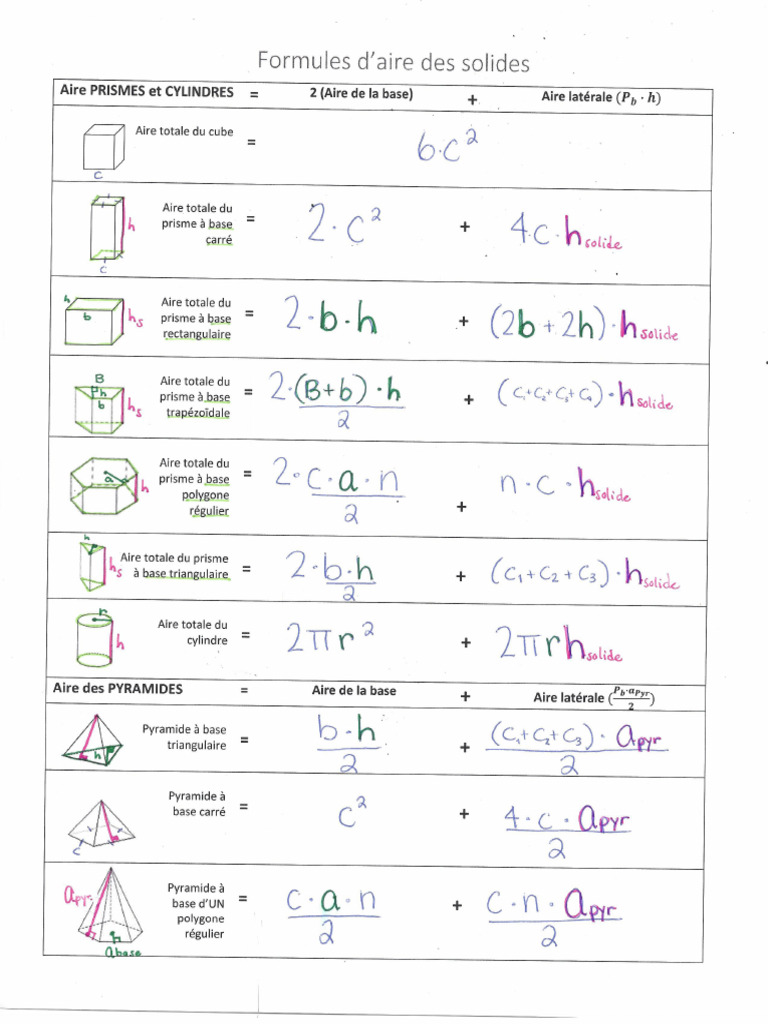 Formules d'aire des solides
Aire PRISMES et CYLINDRES = 2 (Aire de la base) + Aire latérale (P_b · h)
Aire totale du cube = 6·c²
c
Aire totale du prisme à base carré = 2·c² + 4·c·h solide
h
c
Aire totale du prisme à base rectangulaire = 2·b·h + (2b + 2h)·h solide
h
b
hs
Aire totale du prisme à base trapézoïdale = 2·(B+b)·h / 2 + (C₁+C₂+C₃+C₄)·h solide
B
h
b
hs
Aire totale du prisme à base polygone régulier = 2·c·a·n / 2 + n·c·h solide
a
h
Aire totale du prisme à base triangulaire = 2·b·h / 2 + (C₁+C₂+C₃)·h solide
h
hs
Aire totale du cylindre = 2πr² + 2πrh solide
r
h
Aire des PYRAMIDES = Aire de la base + Aire latérale (P_b·a_pyr / 2)
Pyramide à base triangulaire = b·h / 2 + (C₁+C₂+C₃)·a pyr / 2
h
Pyramide à base carré = c² + 4·c·a pyr / 2
c
Pyramide à base d'UN polygone régulier = c·a·n / 2 + c·n·a pyr / 2
a pyr
a base